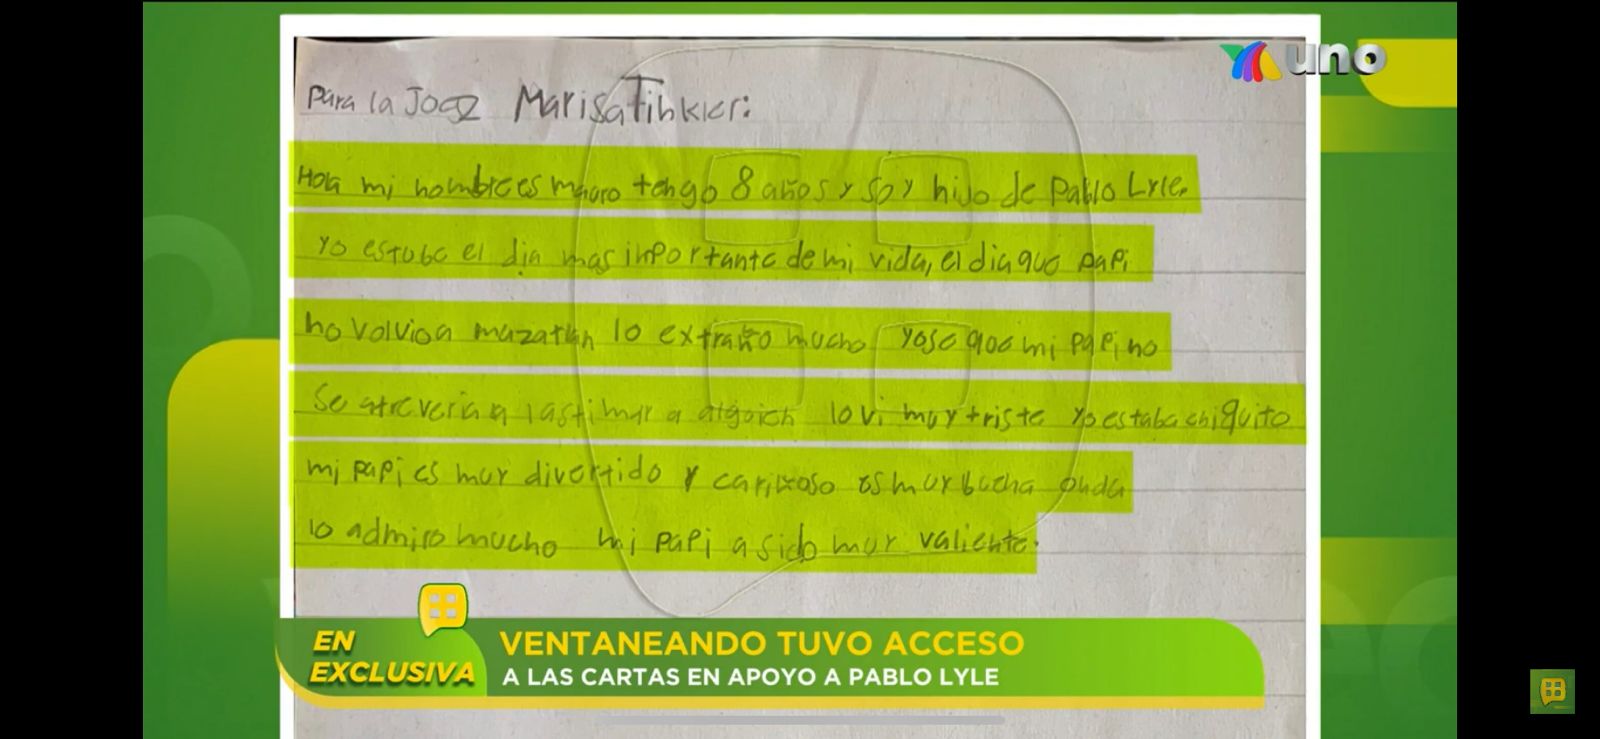 uno
Para la Joez Marisa Tinkler:
Hola mi nombre es mauro tengo 8 años y soy hijo de Pablo Lyle.
yo estube el dia mas inportante de mi vida, el dia que papi
no volvio a mazatlan lo extraño mucho yo se que mi papi no
se atreveria a lastimar a alguien lo vi muy triste yo estaba chiquito
mi papi es muy divertido y cariñoso es muy buena onda
lo admiro mucho mi papi a sido muy valiente.
EN EXCLUSIVA
VENTANEANDO TUVO ACCESO
A LAS CARTAS EN APOYO A PABLO LYLE